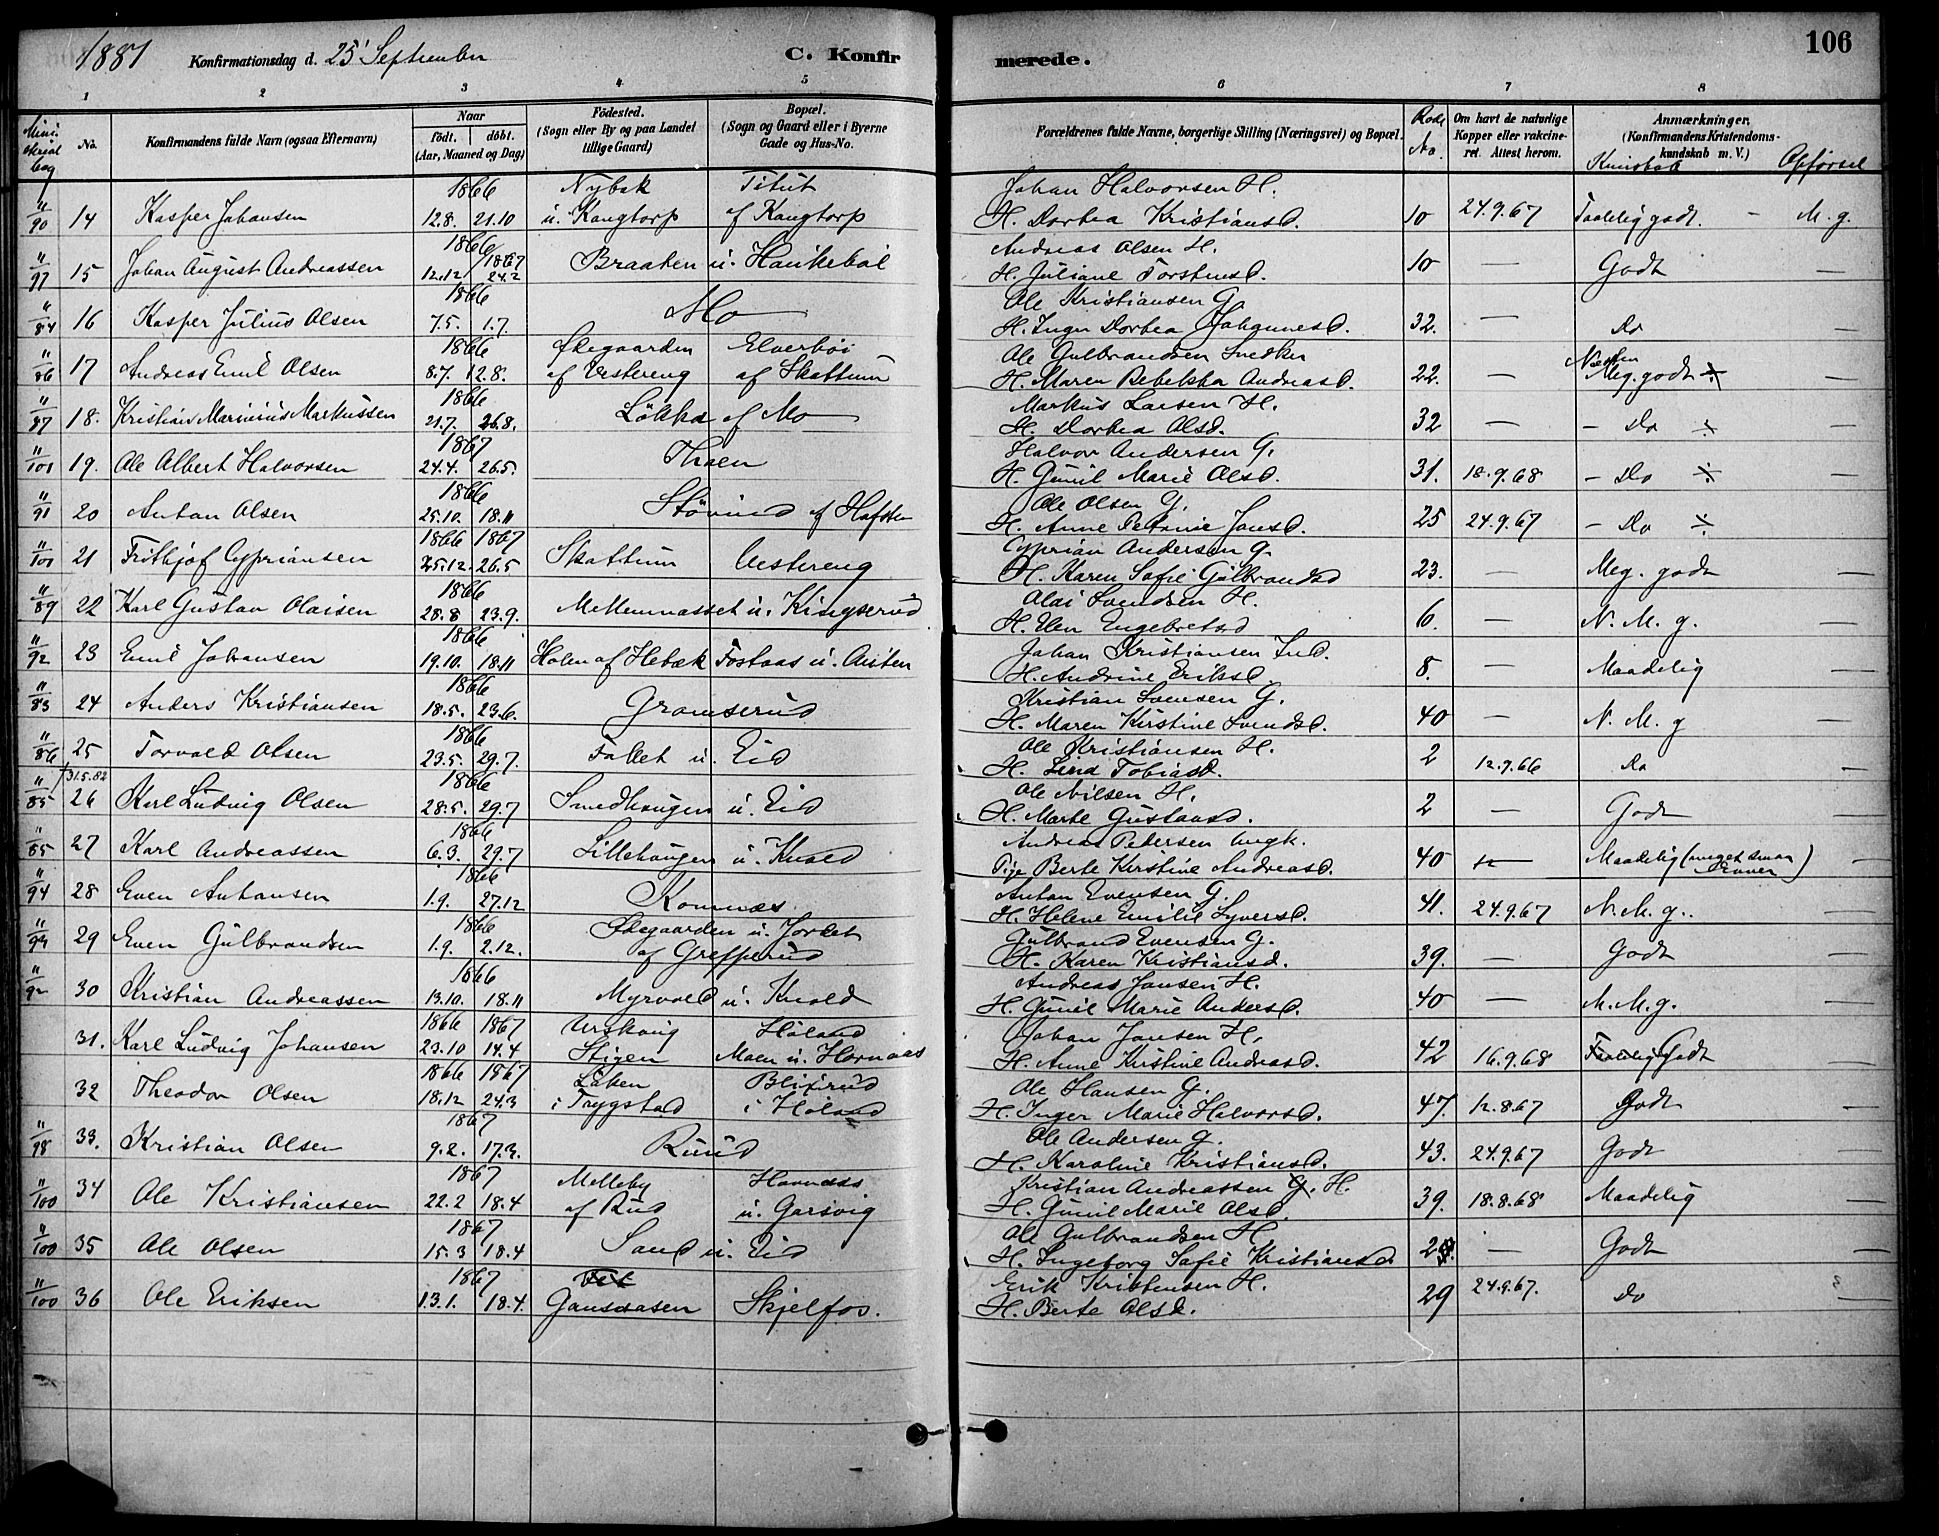 1881 Konfirmationsdag d. 25' September C. Konfirmerede. 106
1 2 3 4 5 6 7 8
No. Konfirmandens fulde Navn (ogsaa Efternavn) Naar födt. döbt. (Aar, Maaned og Dag) Födested. (Sogn eller By og paa Landet tillige Gaard) Bopæl. (Sogn og Gaard eller i Byerne Gade og Hus-No. Forældrenes fulde Navne, borgerlige Stilling (Næringsvei) og Bopæl. Rode No. Om havt de naturlige Kopper eller vakcineret. Attest herom. Anmærkninger. (Konfirmandens Kristendomskundskab m. V.) Kundskab Opførsel
1866 Nybak Titut Johan Halvorsen H.
"/90 14 Kasper Johansen 12.8. 21.10 u. Kangtorp af Kangtorp H. Dorthea Kristiansd. 10 24.9.67 Taalelig godt. - M. g.
1866 1867 Andreas Olsen H.
"/97 15 Johan August Andreassen 12.12 24.2 Braaten u. Haukebøl H. Juliane Torstensd. 10 — Godt —
1866 Ole Kristiansen G.
"/84 16 Kasper Julius Olsen 7.5. 1.7. Mo H. Inger Dorthea Johannesd. 32. — Do —
1866 Ødegaarden Elverhöi Ole Gulbrandsen Snedker
"/86 17 Andreas Emil Olsen 8.7. 12.8. af Vestereng af Skattum H. Maren Rebekka Andreasd. 22. — Næsten Meg. godt —
1866 Markus Larsen H.
"/87 18. Kristian Marinius Markussen 21.7. 26.8. Lökka af Mo H. Dorthea Olsd. 32 — - Do ÷ —
1867 Halvor Andersen G.
"/101 19. Ole Albert Halvorsen 24.4. 26.5. Thoen H. Gunil Marie Olsd. 31. 18.9.68 - Do ÷ —
1866 Ole Olsen G.
"/91 20 Anton Olsen 25.10. 18.11 Stövind af Hafsten H. Anne Petrine Jansd. 25 24.9.67 - Do ÷ —
1866 1867 Cyprian Andersen G.
"/101 21 Frithjof Cypriansen 25.12. 26.5 Skattum Vestereng H. Karen Sofie Gulbrandsd 23. — Meg. godt —
1866 Olai Svendsen H.
"/89 22 Karl Gustav Olaisen 28.8 23.9. Mellemnasset u. Kingserud H. Elen Engebretsd 6. — N. M. g. —
1866 Johan Kristiansen Ind.
"/92 23 Emil Johansen 19.10. 18.11 Holm af Hebæk Fostaas u. Austen H. Andrine Eriksd. 8. — Maadelig —
1866 Kristian Svensen G.
"/83 24 Anders Kristiansen 18.5. 23.6. Gramserud H. Maren Kirstine Svendsd. 40 — N. M. g —
1866 Ole Kristiansen H.
"/86 25 Torvald Olsen 23.5. 29.7. Fallet u. Eid H. Lina Tobiasd. 2 12.9.66 Do —
31.5.82 1866 Ole Nilsen H.
"/85 26 Karl Ludvig Olsen 28.5. 29.7 Smedhaugen u. Eid H. Marte Gustavsd. 2 — Godt —
1866 Andreas Pedersen ungk.
"/85 27 Karl Andreassen 6.3. 29.7 Lillehaugen u. Kvald Pige Berte Kirstine Andreasd. 40 — Maadelig (meget smaa Evner) —
1866 Anton Evensen G.
"/94 28 Even Antonsen 1.9. 27.12 Komnæs H. Helene Emilie Syversd. 41. 24.9.67 N. M. g. —
1866 Ødegaarden u. Jordet Gulbrand Evensen G.
"/94 29 Even Gulbrandsen 1.9. 2.12. af Grefperud H. Karen Kristiansd. 39. — Godt —
1866 Andreas Jansen H.
"/92 30 Kristian Andreassen 13.10. 18.11 Myrvold u. Kvold H. Gunil Marie Andersd. 40 — M. M. g. —
1866 1867 Urskoug Høland Johan Jansen H.
31. Karl Ludvig Johansen 23.10 14.4 Stigen Moen u. Hornaas H. Anne Kirstine Andreasd. 42 16.9.68 Taalelig Godt —
1866 1867 Laken Blixrud Ole Hansen G.
32 Theodor Olsen 18.12 24.3 i Trygstad i Høland H. Inger Marie Halvorsd. 47. 12.8.67 Godt —
1867 Ole Andersen G.
"/98 33. Kristian Olsen 9.2. 17.3. Ruud H. Karoline Kristiansd. 43. 24.9.67 Godt —
1867 Melleby Hornæss Kristian Andreassen G. H.
"/100 34 Ole Kristiansen 22.2 18.4 af Rud u. Garsvig H. Gunil Marie Olsd. 39. 18.8.68 Maadelig —
1867 Ole Gulbrandsen H
"/100 35 Ole Olsen 15.3 18.4 Sand u. Eid H. Ingeborg Sofie Kristiansd 2 — Godt —
1867 Fet Erik Kristensen H.
"/100 36 Ole Eriksen 13.1. 18.4. Gansaasen Skjelfos. H. Berte Olsd. 29 24.9.67. Do